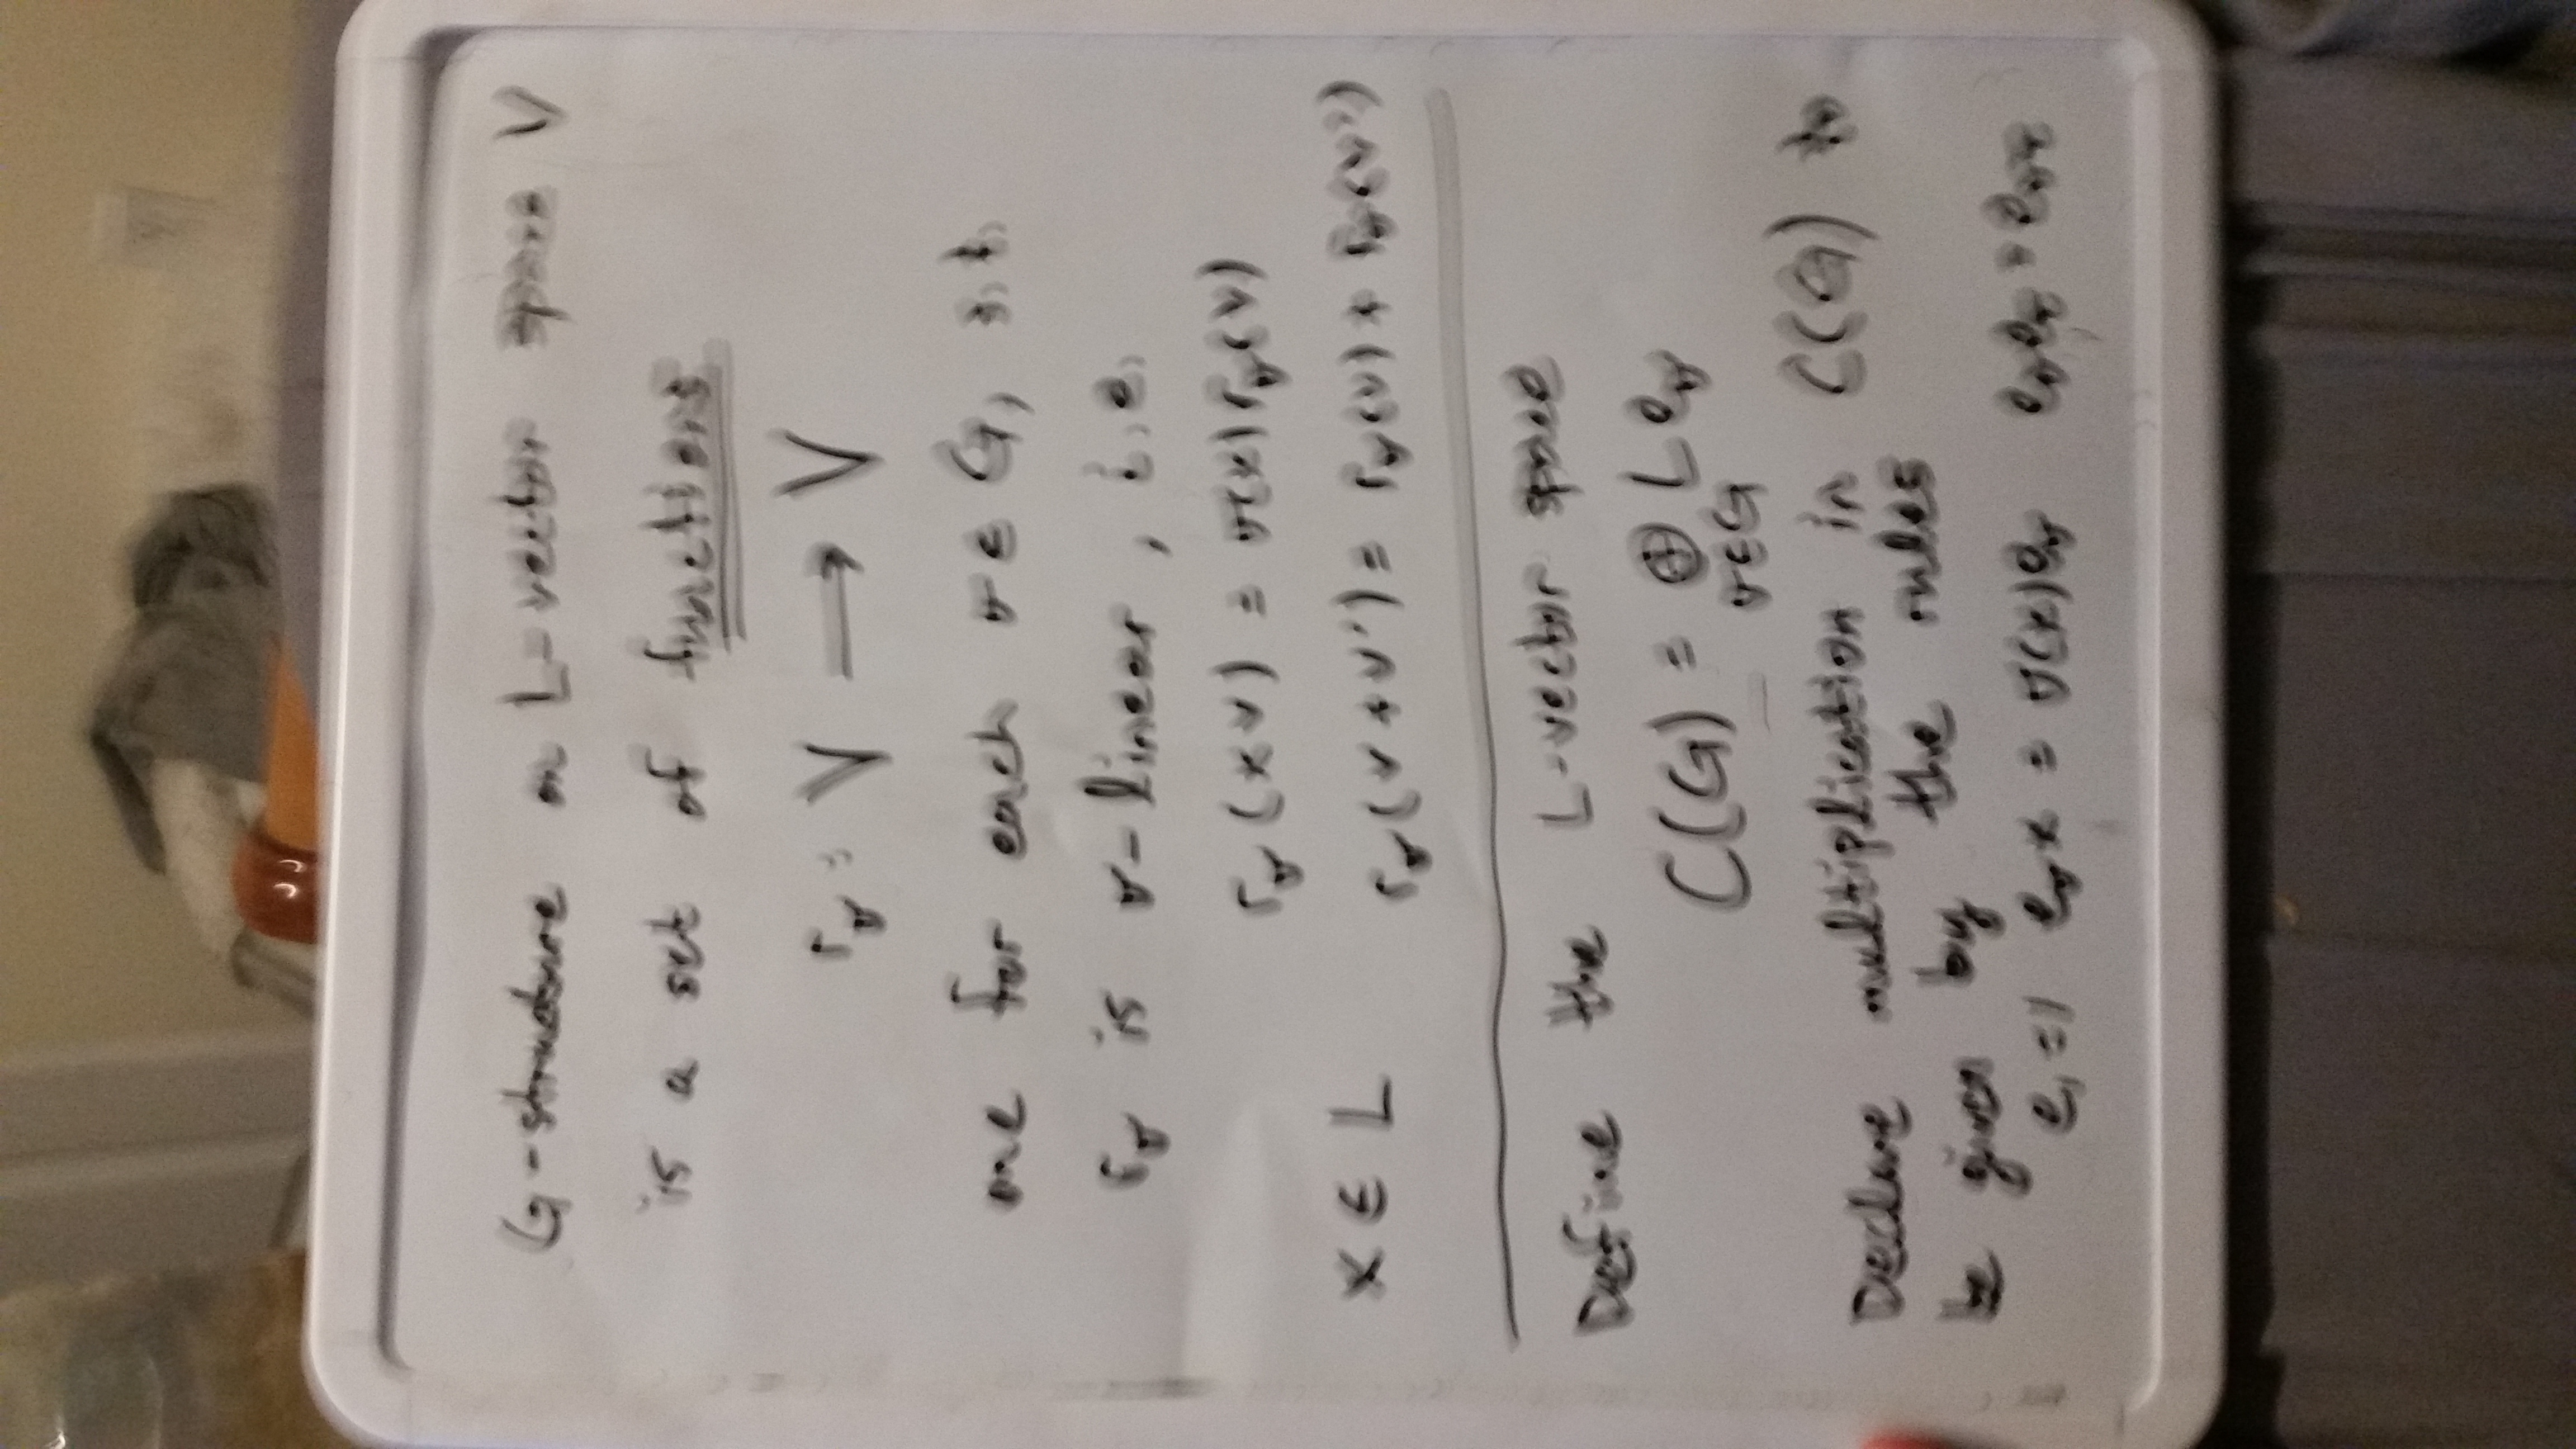 G-structure on L-vector space V
is a set of functions
r_σ : V → V
one for each σ ∈ G, s.t.
r_σ is σ-linear, i.e.
r_σ(xv) = σ(x) r_σ(v)
x ∈ L r_σ(v + v') = r_σ(v) + r_σ(v')
Define the L-vector space
C(G) = ⊕ L e_σ
σ∈G
Declare multiplication in C(G) to
be given by the rules
e_1 = 1 e_σ x = σ(x) e_σ e_σ e_τ = e_στ